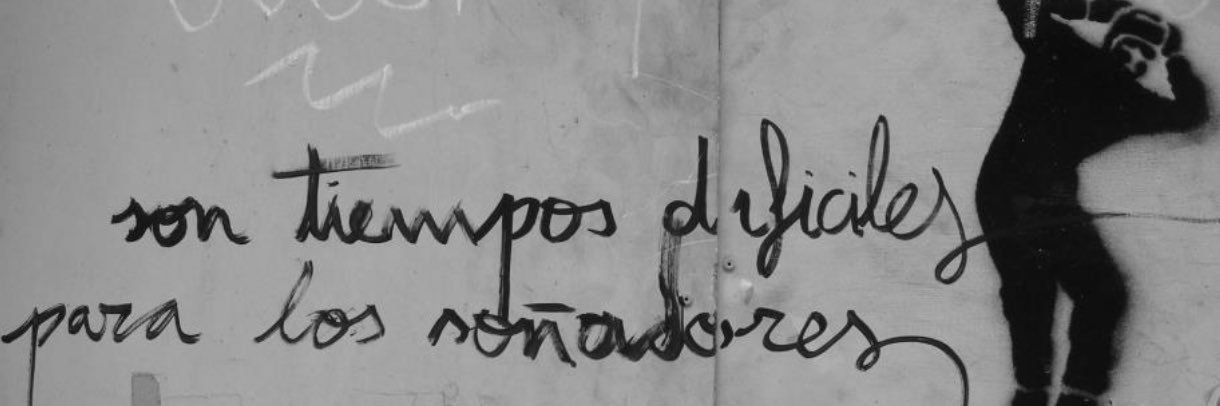 son tiempos dificiles
para los soñadores